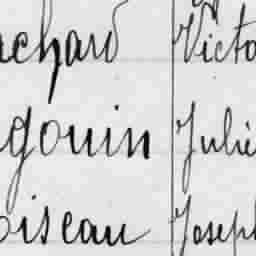 achard Victo
gouin Julie
oiseau Joseph